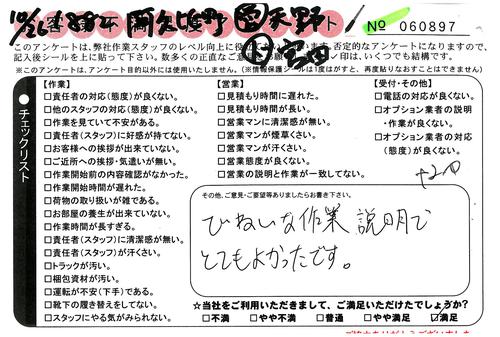 No 060897
このアンケートは、弊社作業スタッフのレベル向上に
否定的なアンケートになりますので、
記入後シールを上に貼って下さい。数多くの正直なご意
印は、いくつでも結構です。
※このアンケートは、アンケート目的以外には使用いたしません。(※情報保護シールは1度はがすと、再度貼りなおすことはできません。)
チェックリスト
【作業】
□責任者の対応(態度)が良くない。
□他のスタッフの対応(態度)が良くない。
□作業を見ていて不安がある。
□責任者(スタッフ)に好感が持てない。
□お客様への挨拶が出来ていない。
□ご近所への挨拶・気遣いが無い。
□作業開始前の内容確認がなかった。
□作業開始時間が遅れた。
□荷物の取り扱いが雑である。
□お部屋の養生が出来ていない。
□作業時間が長すぎる。
□責任者(スタッフ)に清潔感が無い。
□責任者(スタッフ)が汗くさい。
□トラックが汚い。
□梱包資材が汚い。
□運転が不安(下手)である。
□靴下の履き替えをしてない。
□スタッフにやる気がみられない。
【営業】
□見積もり時間に遅れた。
□見積もり時間が長い。
□営業マンに清潔感が無い。
□営業マンが煙草くさい。
□営業マンが汗くさい。
□営業態度が良くない。
□営業の説明と作業が一致してない。
【受付・その他】
□電話の対応が良くない。
□オプション業者の説明
・作業が良くない。
□オプション業者の対応
(態度)が良くない。
その他、ご意見・ご要望等ありましたらお書き下さい。
ていねいな作業 説明で
とてもよかったです。
☆当社をご利用いただきまして、ご満足いただけたでしょうか?
□不満 □やや不満 □普通 □やや満足 ☑満足